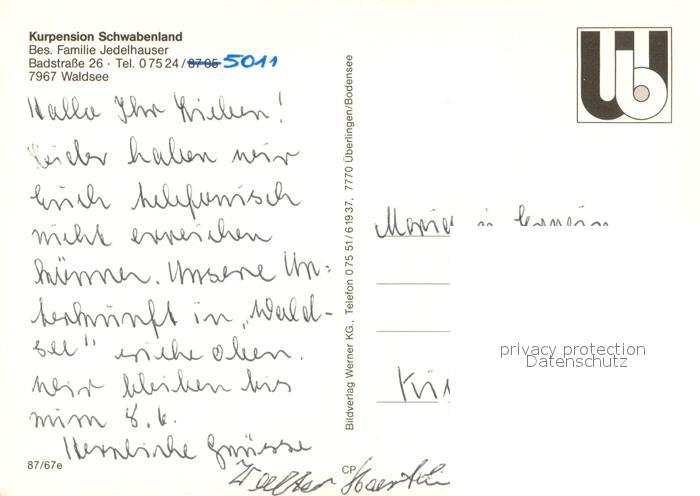 Kurpension Schwabenland
Bes. Familie Jedelhauser
Badstraße 26 · Tel. 0 75 24 / 87 05 5011
7967 Waldsee
Hallo Ihr Lieben!
Leider haben wir
Euch telefonisch
nicht erreichen
können. Unsere Un-
terkunft in „Wald-
see" siehe oben.
Wir bleiben bis
zum 8.6.
Herzliche Grüsse
Walter
87/67e
Bildverlag Werner KG., Telefon 0 75 51/6 19 37, 7770 Überlingen/Bodensee
CP
privacy protection
Datenschutz